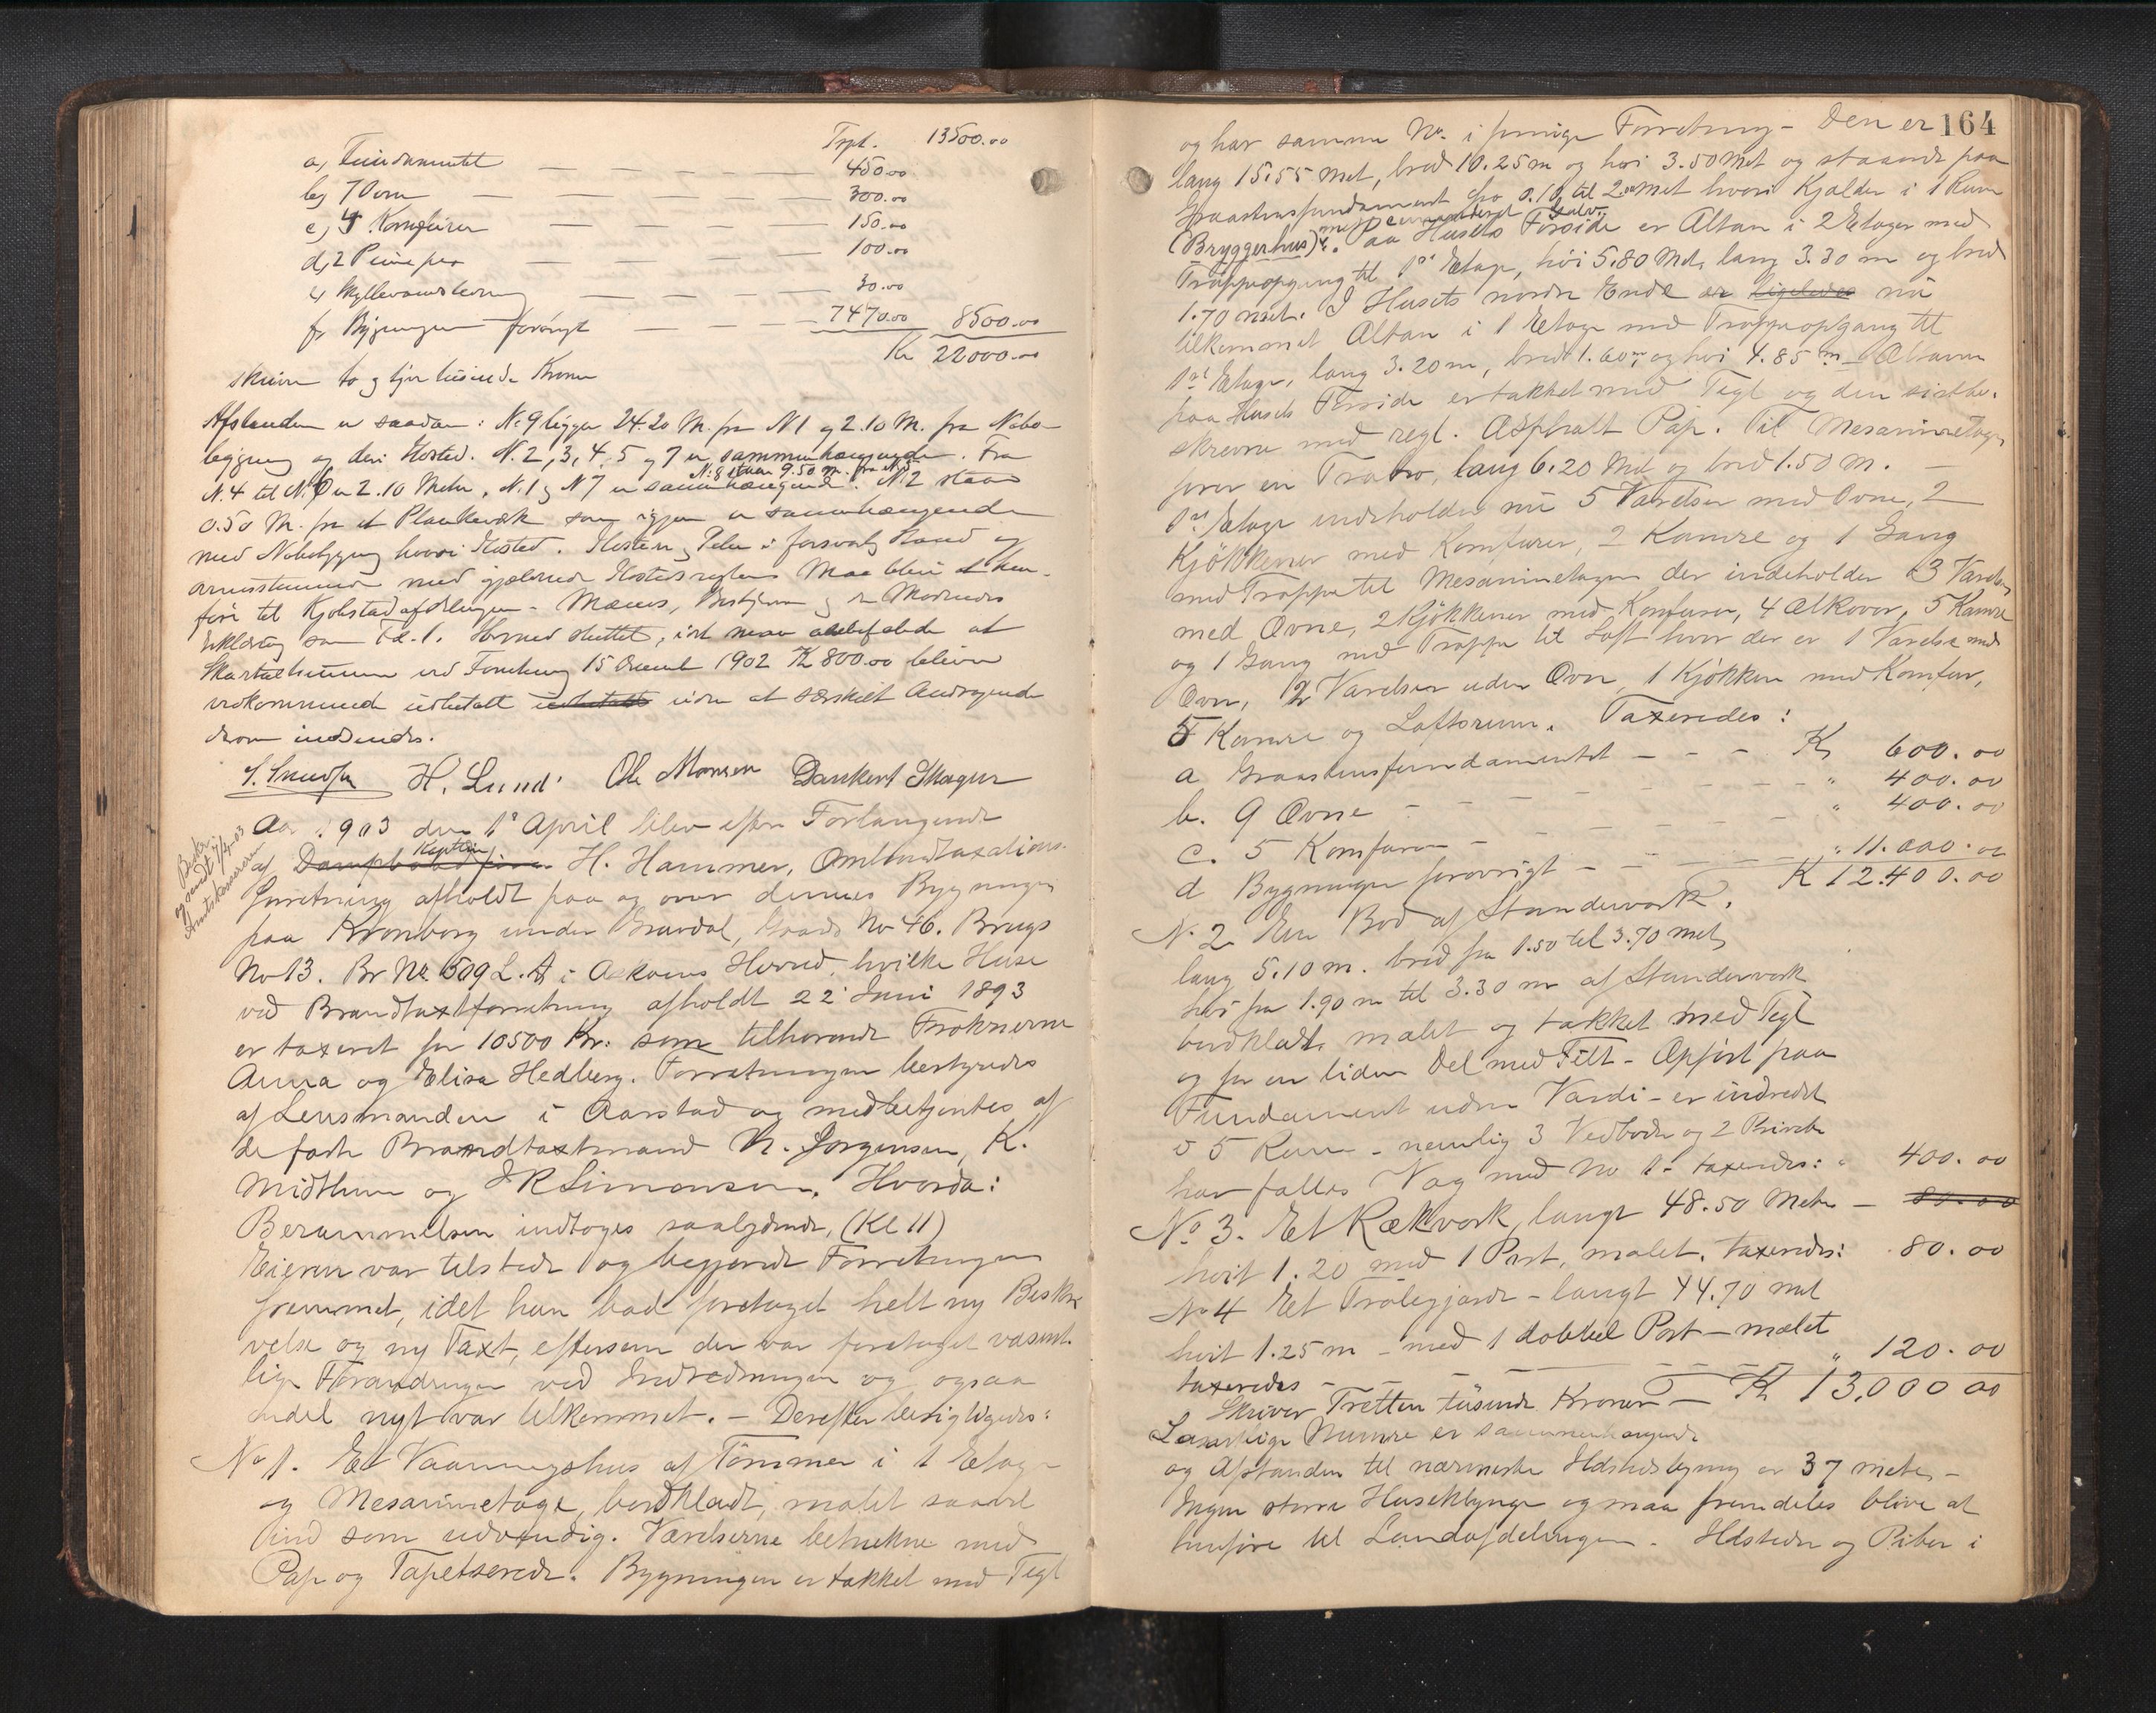 Trpt. 13500.00
a, Fundamentet — — — — 450.00
b, 7 Ovne — — — — 300.00
c, 4 Komfurer — — — — 150.00
d, 2 — — — — 100.00
e, Skyllevandsledning — — — 30.00
f, Bygningen forövrigt — — — 7470.00 8500.00
Kr 22000.00
skriver to og tyve tusinde Kroner
Afstanden er saadan: N. 9 ligger 24.20 M. fra N 1 og 2.10 M. fra Nabo-
bygning og deri Ilsted. N. 2, 3, 4, 5 og 7 er sammenhængende. Fra
N: 8 staar 9.50 m. fra N:
N. 4 til N. 6 er 2.10 Meter, N. 1 og N 7 er sammenhængende. N. 2 staar
0.50 M. fra et Plankeværk som igjen er sammenhængende
med Nabobygning hvori Ilsted. Ildsteder og Piber i forsvarlig Stand og
overensstemmende med gjældende Ilstedsregler. Maa blive at hen-
føre til Kjøbstadafdelingen. Mænds, Bestyrers og de Mødendes
Erklæring som Fd. 1. Hermed sluttet, idet man anbefalede at
Skadeserstatningen ved Forretning 15 Decemb 1902 Kr 800.00 bliver
vedkommende udbetalt udbetalt uden at særskilt Andragende
derom indsendes.
H. Lund Ole Monsen Dankert Skagen
Beskr.
og sendt 7/4-03
Amtskassereren
Aar 1903 den 1ste April blev efter Forlangende
Kaptein
af H. Hammer, Ombrandtaxations-
forretning afholdt paa og over dennes Bygninger
paa Kronborg under Gravdal, Gaards No 46. Brugs
No 13. Br No. 609 L. A i Askøens Herred, hvilke Huse
ved Brandtaxtforretning afholdt 22' Juni 1893
er taxeret for 10500 Kr: som tilhørende Frøknerne
Anna og Elisa Hedberg. Forretningen bestyredes
af Lensmanden i Aarstad og medbetjentes af
de faste Brandtaxtmænd N. Jørgensen, K.
Midthun og J R Simonsen. Hvorda:
Berammelsen indtoges saalydende, (Kl 11)
Eieren var tilstede og begjærede Forretningen
fremmet, idet han bad foretaget helt ny Beskri
velse og ny Taxt, eftersom der var foretaget væsent-
lige Forandringer ved Indredningen og ogsaa
endel nyt var tilkommet. — Derefter besigtigedes:
No 1. Et Vaaningshus af Tømmer i 1 Etage
og Mesaninetage, bordklædt, malet saavel
ind som udvendig. Værelserne betrukne med
Pap og Tapetserede. Bygningen er takket med Tegl
164
og har samme No. i forrige Forretning — Den er
lang 15.55 Met, bred 10.25 m og høi 3.50 Met og staaende paa
Graastensfundament fra 0.10 til 2.00 Met hvori Kjælder i 1 Rum
med cementeret Gulv.
(Bryggerhus). Paa Husets Forside er Altan i 2 Etager med
Trappeopgang til 1ste Etage, høi 5.80 Met, lang 3.30 m og bred
1.70 met. I Husets nordre Ende er ligeledes nu
tilkommet Altan i 1 Etage med Trappeopgang til
1ste Etage, lang 3.20 m, bred 1.60 m, og høi 4.85 m — Altanen
paa Husets Forside er takket med Tegl og den sidstbe-
skrevne med regl. Asphalt Pap. Til Mesaninetagen
fører en Træbro, lang 6.20 Met og bred 1.50 m. —
1ste Etage indeholder nu 5 Værelser med Ovne, 2
Kjøkkener med Komfurer, 2 Kamre og 1 Gang
med Trappe til Mesaninetagen der indeholder 3 Værelser
med Ovne, 2 Kjøkkener med Komfurer, 4 Alkover, 5 Kamre
og 1 Gang med Trappe til Loft hvor der er 1 Værelse med
Ovn, 2 Værelser uden Ovn, 1 Kjøkken med Komfur,
5 Kamre og Loftsrum. Taxeredes:
a Graastensfundamentet — — — Kr 600.00
b. 9 Ovne — — — " 400.00
c. 5 Komfurer — — — " 400.00
d Bygningen forøvrigt — — — " 11.000.00
K 12.400.00
N. 2 En Bod af Stenderværk,
lang 5.10 m. bred fra 1.50 til 3.70 met,
høi fra 1.90 m til 3.30 m af Stenderværk
bordklædt, malet og takket med Tegl
og for en liden Del med Filt — Opført paa
Fundament uden Værdi — er indredet
i 5 Rum — nemlig 3 Vedboder og 2 Priveter
har fælles Væg med No 1 — taxeredes: " 400.00
No 3. Et Rækværk, langt 48.50 Meter — 80.00
høit 1.20 med 1 Port, malet, taxeredes: 80.00
No 4 Et Trælegjærde — langt 44.70 met
høit 1.25 m — med 1 dobbel Port — malet
taxeredes — — — — " 120.00
Skriver Tretten tusinde Kroner — Kr 13,000 00
Samtlige Numre er sammenhængende
og Afstanden til nærmeste Ildstedsbygning er 37 meter —
Ingen større Huseklynge og maa fremdeles blive at
henføre til Landafdelingen. Ildsteder og Piber i